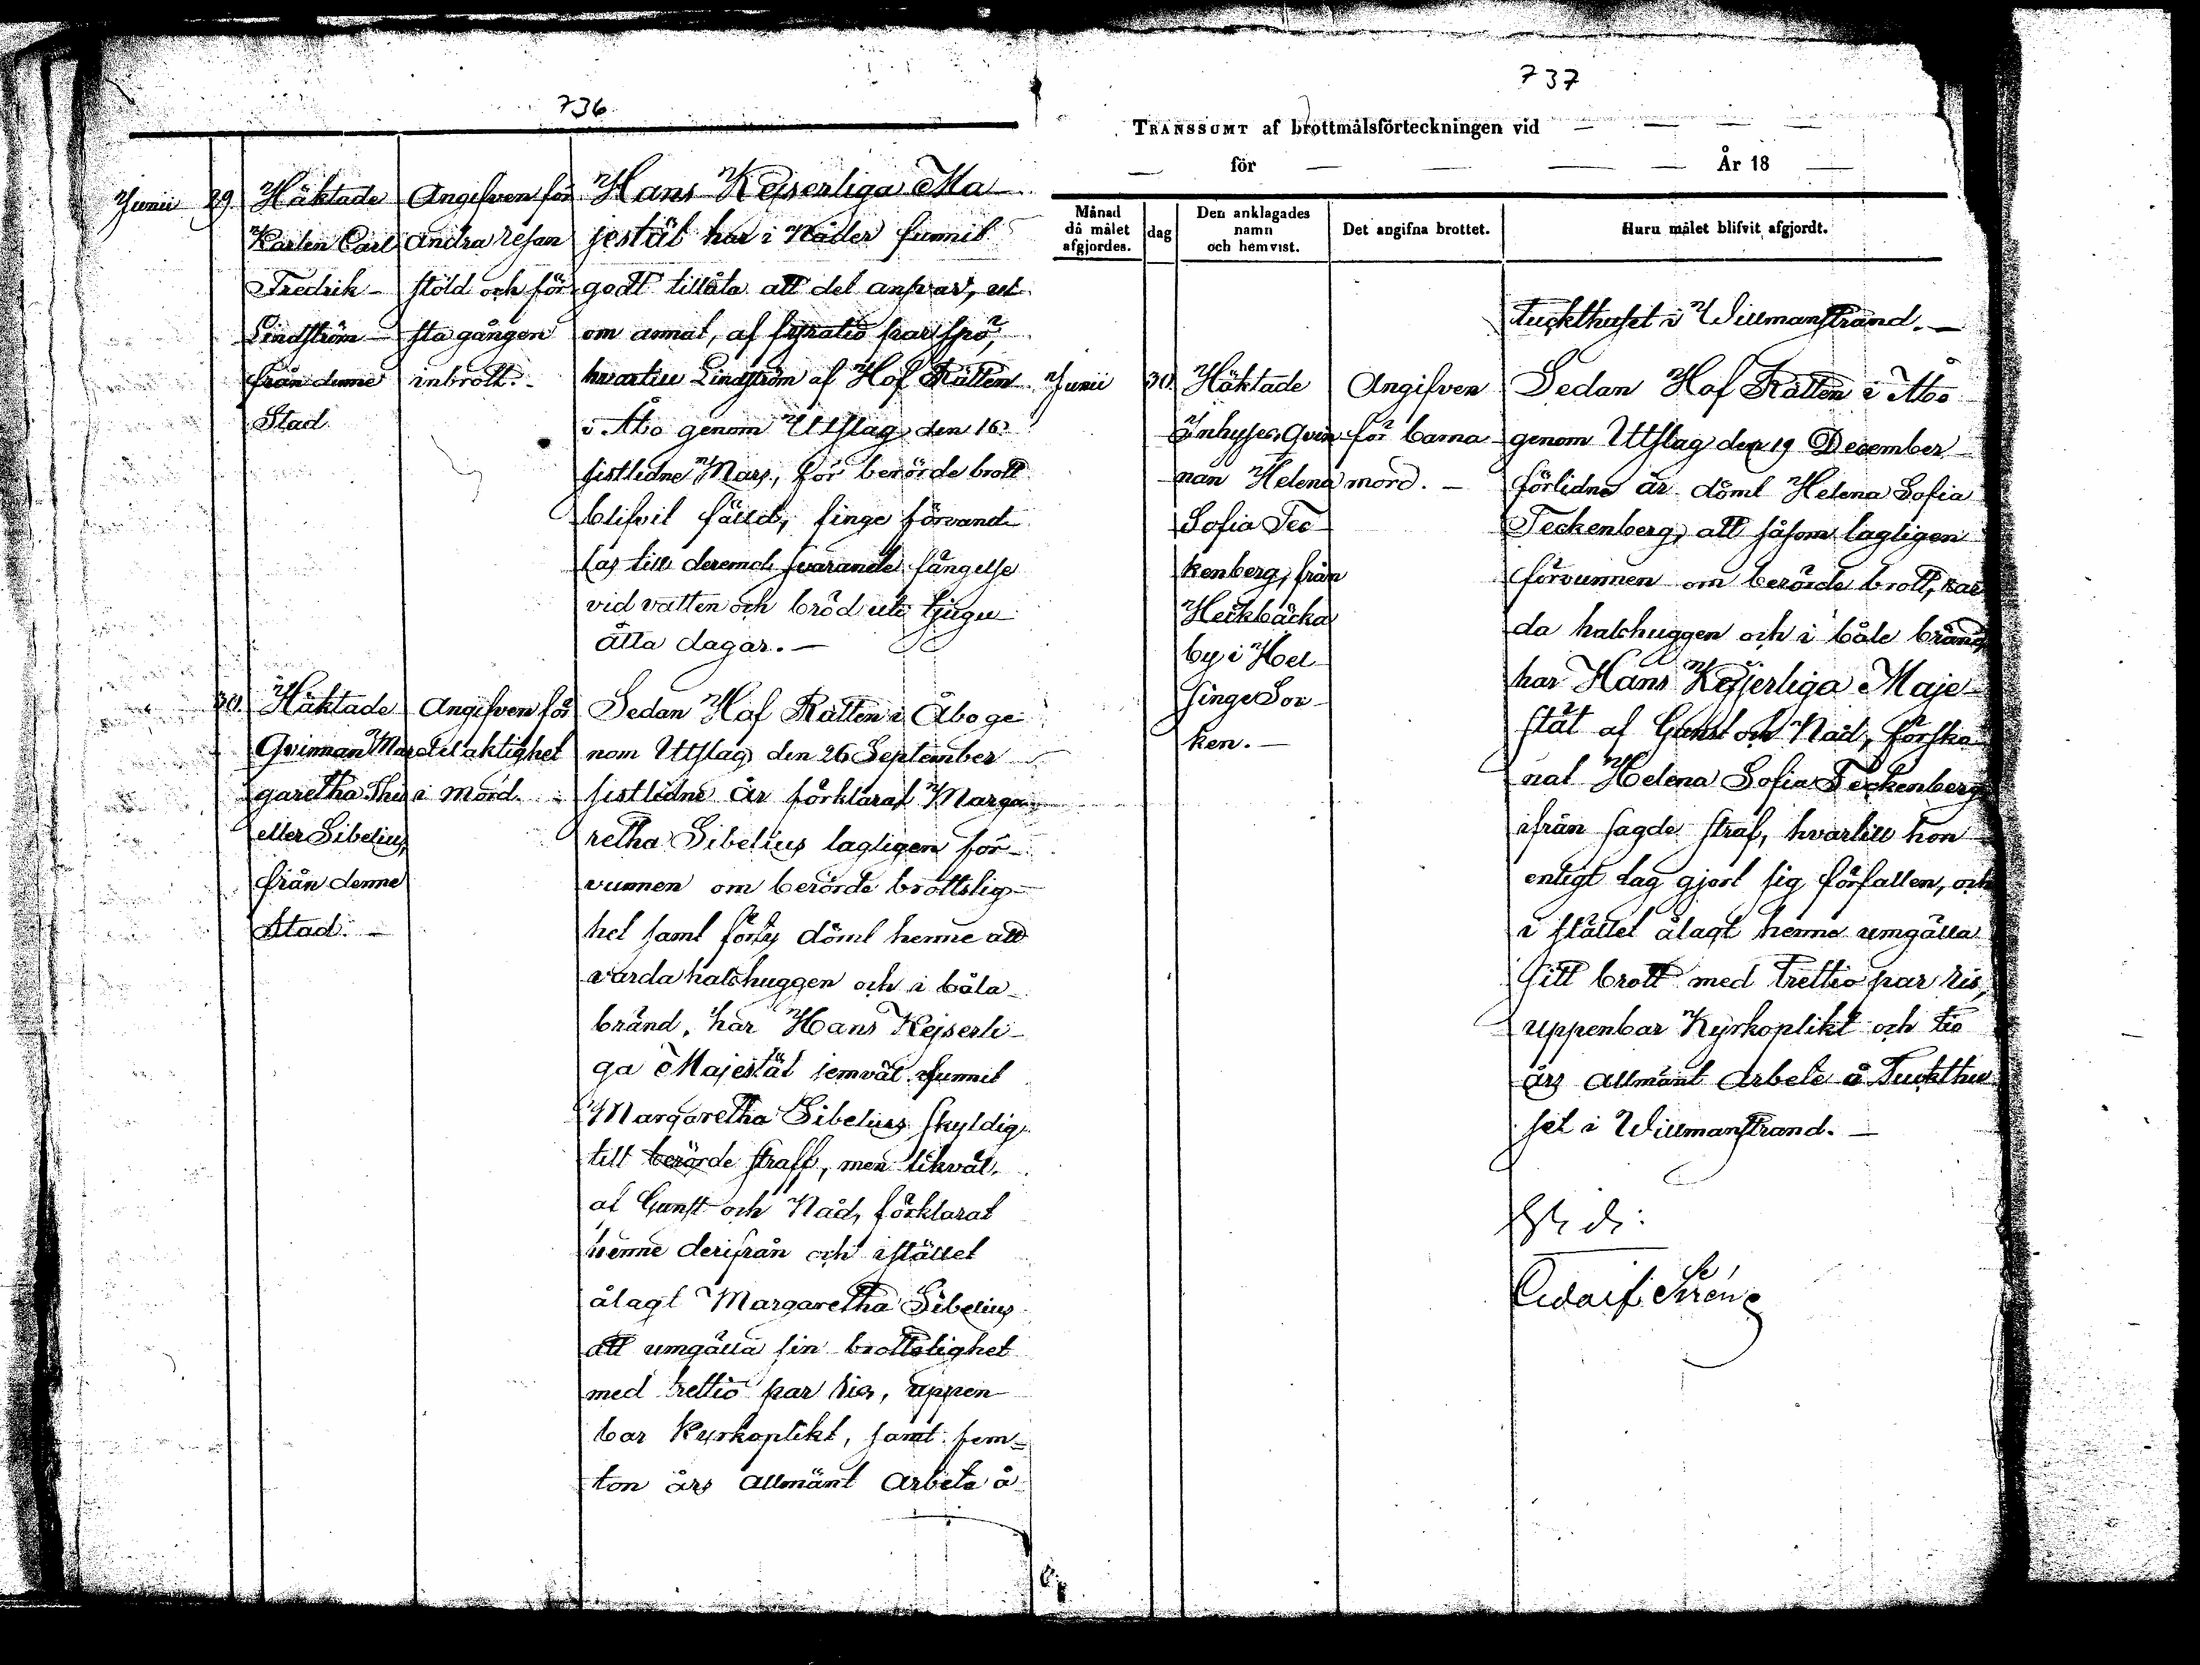 736
Junii 29
Häktade
Karlen Carl
Fredrik
Lindström
från denne
Stad
Angifven för
andra resan
stöld och för
sta gången
inbrott.
Hans Kejserliga Ma
jestät har i Nåder funnit
godt tillåta att det ansvar, ut
om annat, af fyratio par spö,
hvartill Lindström af Hof Rätten
i Åbo genom Utslag den 16
sistledne Mars, för berörde brott
blifvit fälld, finge förvand
las till deremot svarande fängelse
vid vatten och bröd uti tjugu
åtta dagar. —
30.
Häktade
Qvinnan Mar
garetha Thu
eller Sibelius,
från denne
Stad. —
Angifven för
delaktighet
i mord.
Sedan Hof Rätten i Åbo ge
nom Utslag den 26 September
sistledne år förklarat Marga
retha Sibelius lagligen för
vunnen om berörde brottslig
het samt förty dömt henne att
varda halshuggen och i båle
bränd, har Hans Kejserli
ga Majestät jemväl funnit
Margaretha Sibelius skyldig
till berörde straff, men likväl
af Gunst och Nåd, förklarat
henne derifrån och istället
ålagt Margaretha Sibelius
att umgälla sin brottslighet
med trettio par ris, uppen
bar Kyrkoplikt, samt fem=
ton års allmänt arbete å
737
TRANSSUMT af brottmålsförteckningen vid — — — —
— för — — — År 18 —
Månad
då målet
afgjordes.
dag
Den anklagades
namn
och hemvist.
Det angifna brottet.
Huru målet blifvit afgjordt.
Tuckthuset i Willmanstrand. —
Junii 30.
Häktade
Inhyses Qvin
nan Helena
Sofia Tec
kenberg, från
Heckbäcka
by i Hel
singe Soc
ken. —
Angifven
för barna
mord. —
Sedan Hof Rätten i Åbo
genom Utslag den 19 December
förlidne år dömt Helena Sofia
Teckenberg, att såsom lagligen
förvunnen om berörde brott, var
da halshuggen och i båle bränd,
har Hans Kejserliga Maje
stät af Gunst och Nåd, försko
nat Helena Sofia Teckenberg
ifrån sagde straf, hvartill hon
enligt lag gjort sig förfallen, och
i stället ålagt henne umgälla
sitt brott med trettio par ris,
uppenbar Kyrkoplikt och tio
års allmänt arbete å Tuckthu
set i Willmanstrand. —